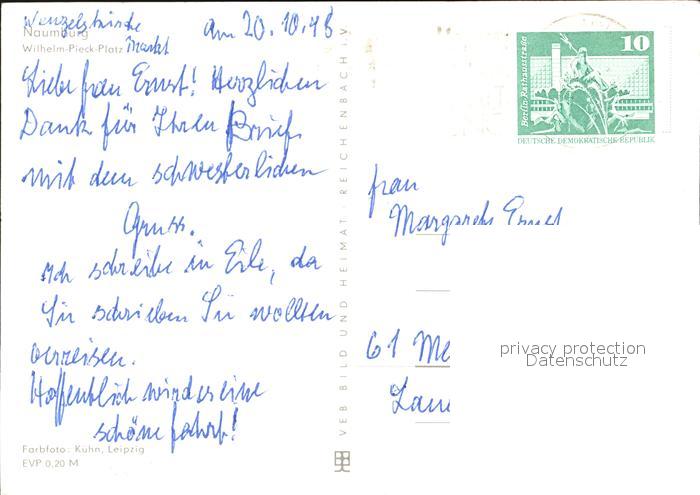 Wenzelskirche
Naumburg
Wilhelm-Pieck-Platz Markt
am 20.10.78
Liebe Frau Ernst! Herzlichen
Dank für Ihren Brief
mit dem schwesterlichen
Gruss.
Ich schreibe in Eile, da
Sie schrieben Sie wollten
verreisen.
Hoffentlich wird es eine
schöne Fahrt!
Farbfoto: Kühn, Leipzig
EVP 0,20 M
VEB BILD UND HEIMAT · REICHENBACH i.V.
10
Berlin·Rathausstraße
DEUTSCHE DEMOKRATISCHE REPUBLIK
Frau
Margarete Ernst
61 Me
privacy protection
Datenschutz